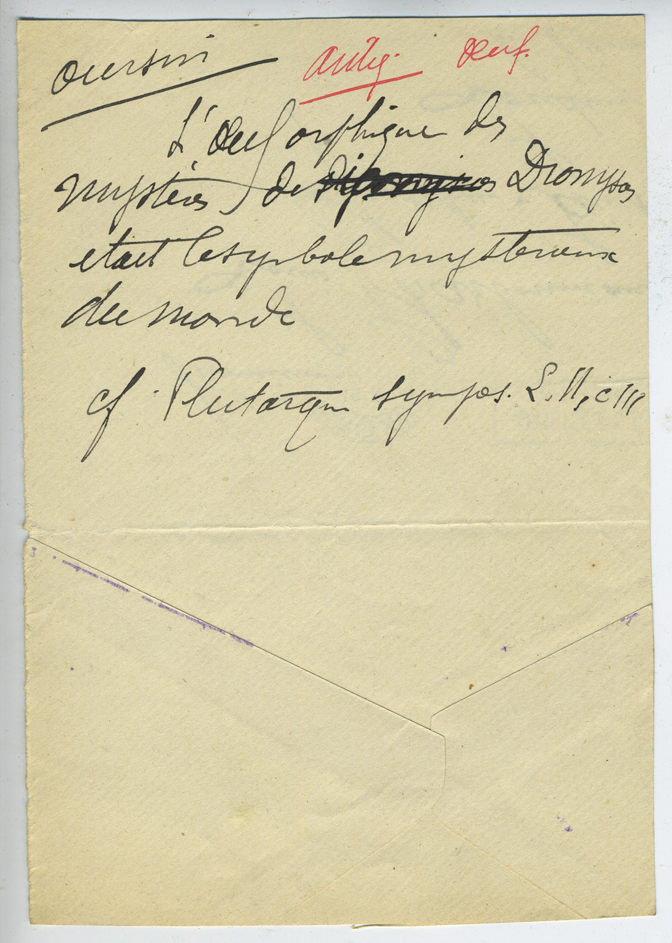 oursin antiq. Oeuf.
L'Oeuf orphique des
mystères de Dionysos
etait le symbole mysterieux
du monde
cf. Plutarque sympos. L. II, c III